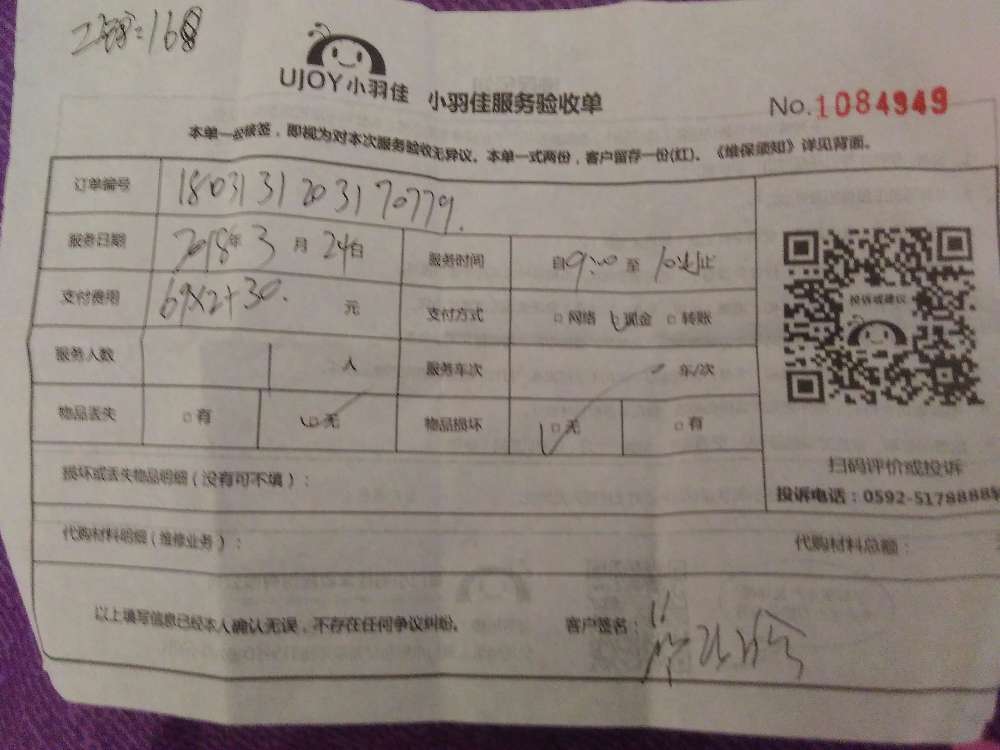 168
UJOY小羽佳 小羽佳服务验收单 No.1084949
本单一经接签，即视为对本次服务验收无异议。本单一式两份，客户留存一份(红)。《维保须知》详见背面。
订单编号 1803131203170779
服务日期 2018年3月24日 服务时间 自9:00至 止
支付费用 69X2+30. 元 支付方式 网络 现金 转账
服务人数 1人 服务车次 车/次
物品丢失 有 无 物品损坏 无 有
投诉或建议
扫码评价或投诉
损坏或丢失物品明细（没有可不填）：
投诉电话：0592-5178888
代购材料明细（维修业务）： 代购材料总额：
以上填写信息已经本人确认无误，不存在任何争议纠纷。 客户签名：